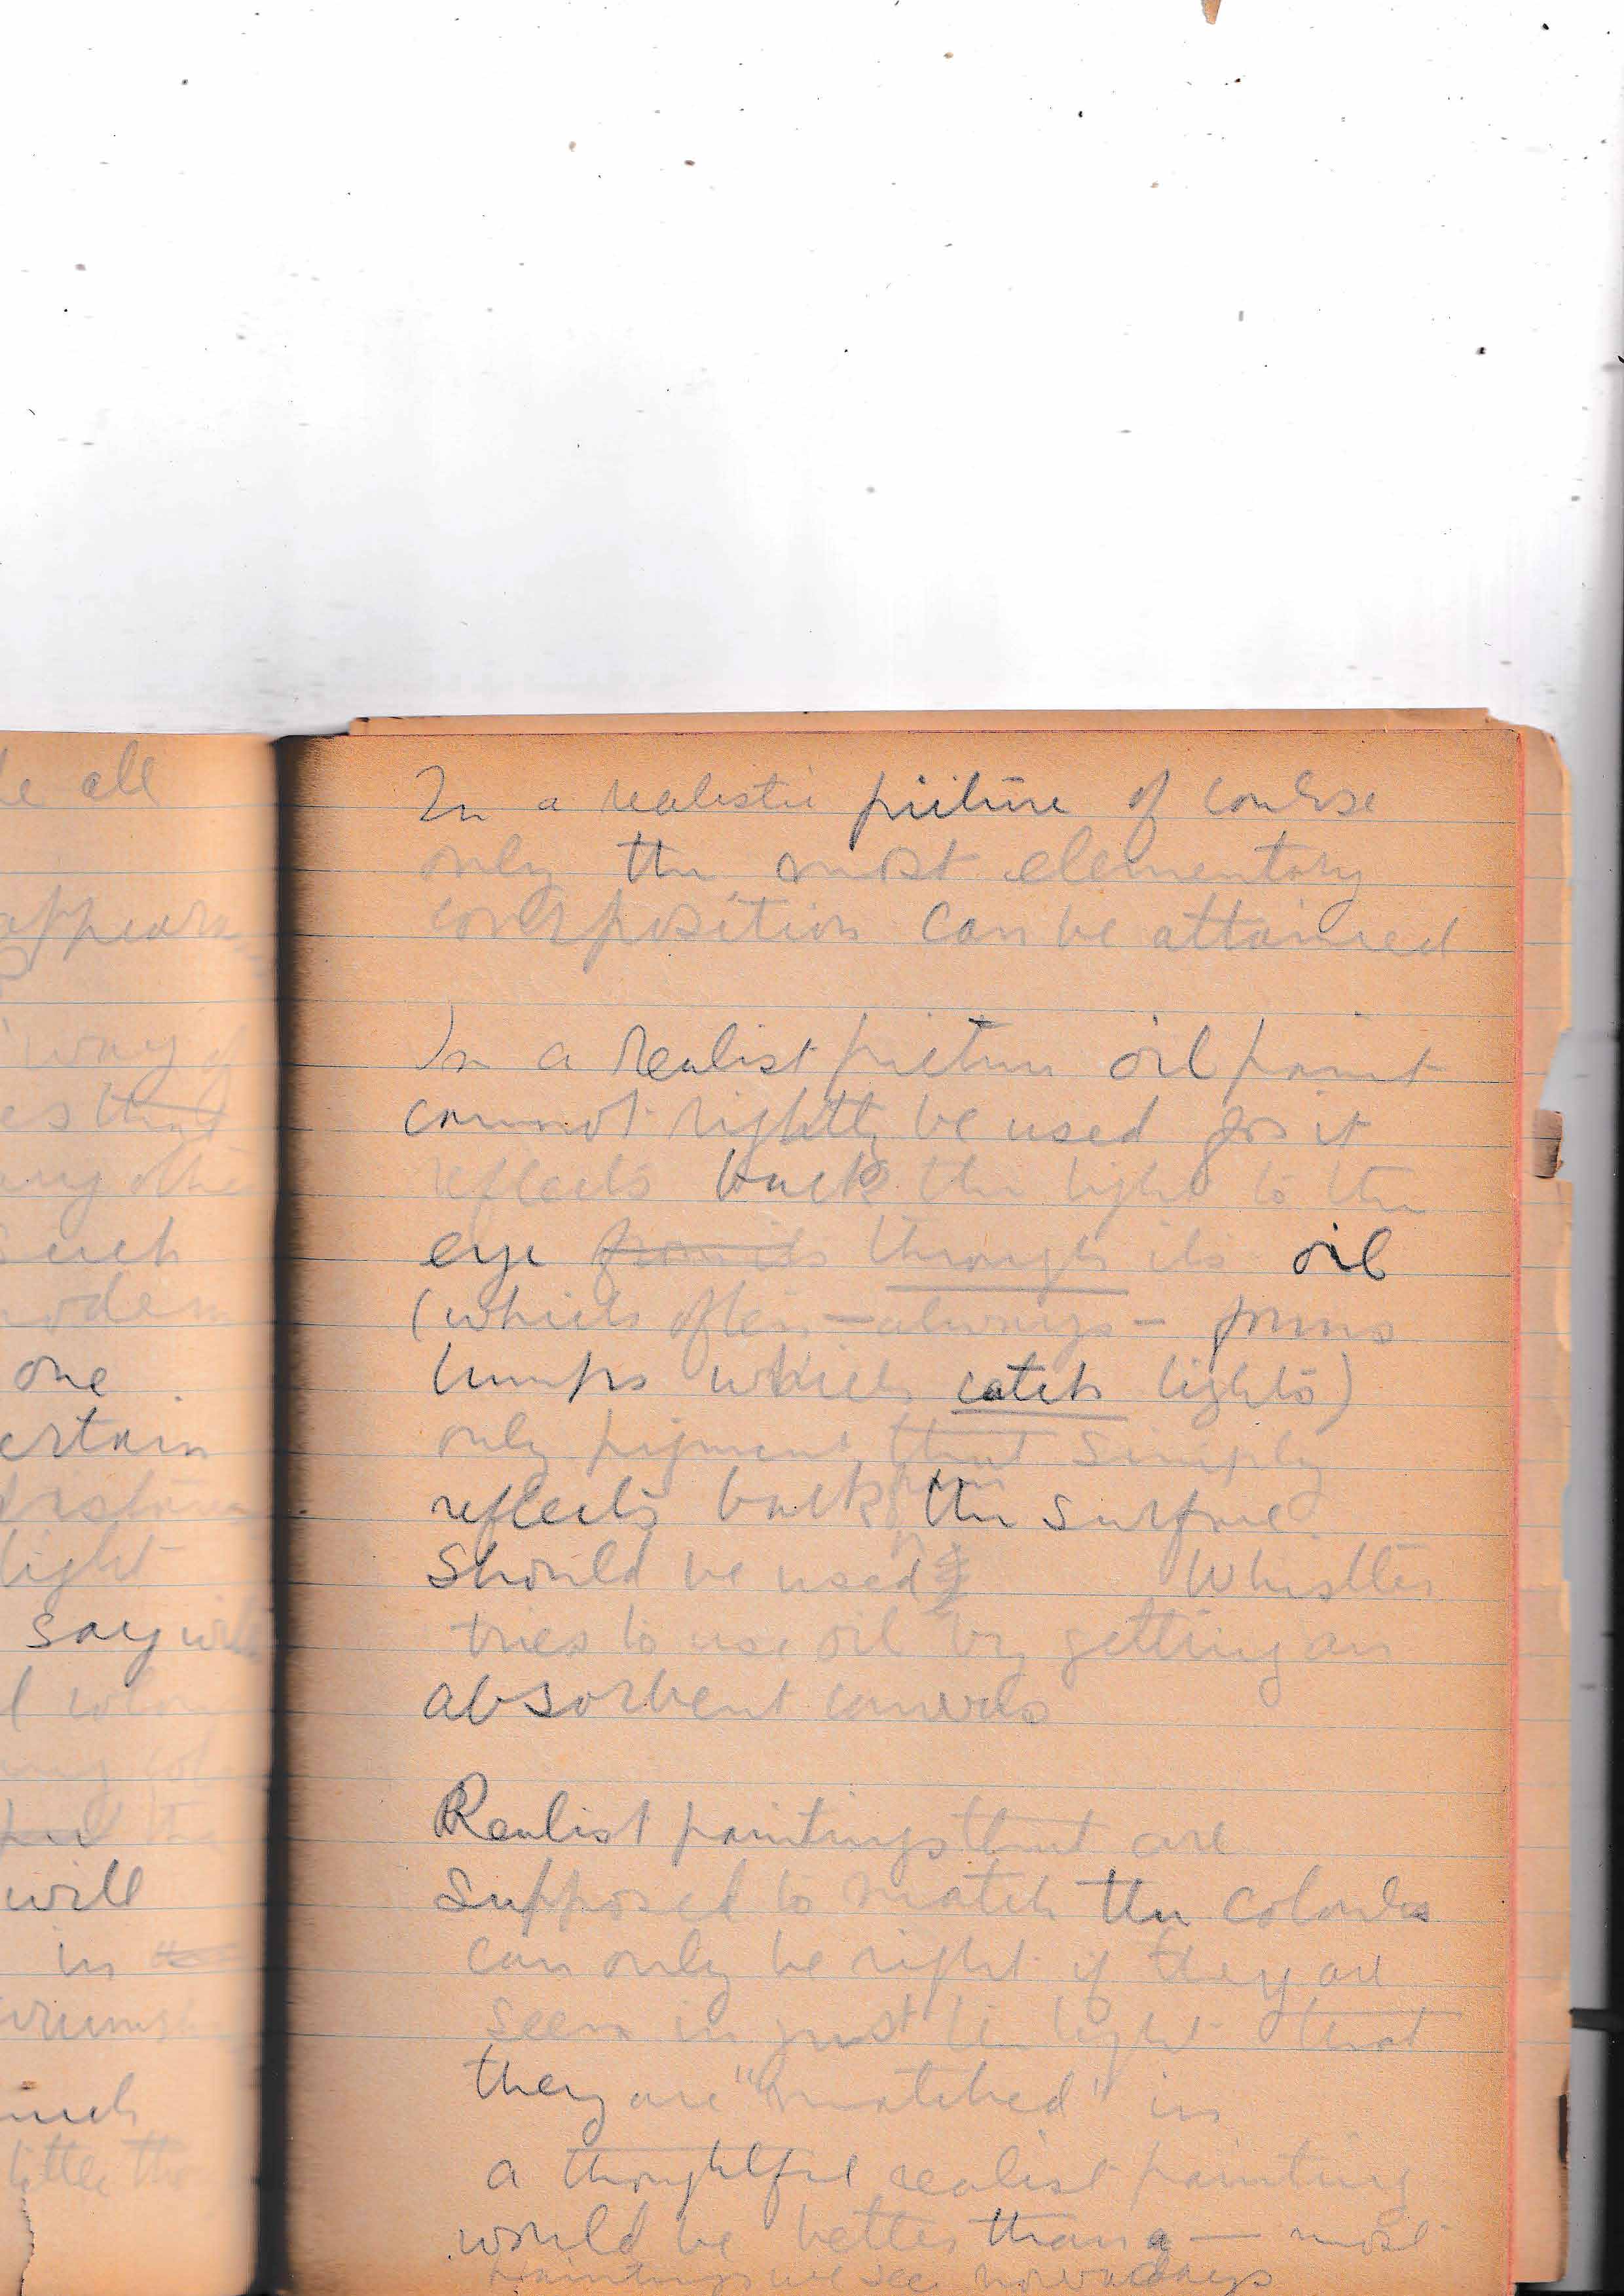 le all
appear
way of
es that
any othe
such
moder
one
ertain
distance
light
say wi
l colou
any col
the
will
in
circumst
much
little tho
In a realistic picture of course
only the most elementary
composition can be attained
In a realist picture oil paint
cannot rightly be used for it
reflects back the light to the
eye from its through its oil
(which often – always – forms
lumps which catch lights)
only pigment that simply
reflects back from the surface
should be used Whistler
tries to use oil by getting an
absorbent canvas
Realist paintings that are
supposed to match the colours
can only be right if they are
seen in just the light that
they are "matched" in
a thoughtful realist painting
would be better than a — most
paintings we see nowadays